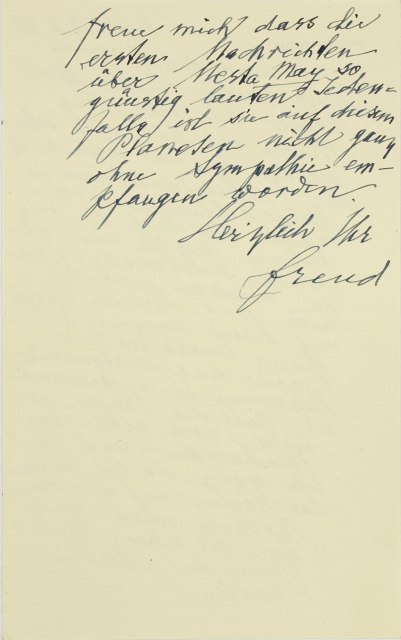 freue mich dass die
ersten Nachrichten
über Nesta May so
günstig lauten Jeden=
falls ist sie auf diesem
Planeten nicht ganz
ohne Sympathie em-
pfangen worden.
Herzlich Ihr
Freud